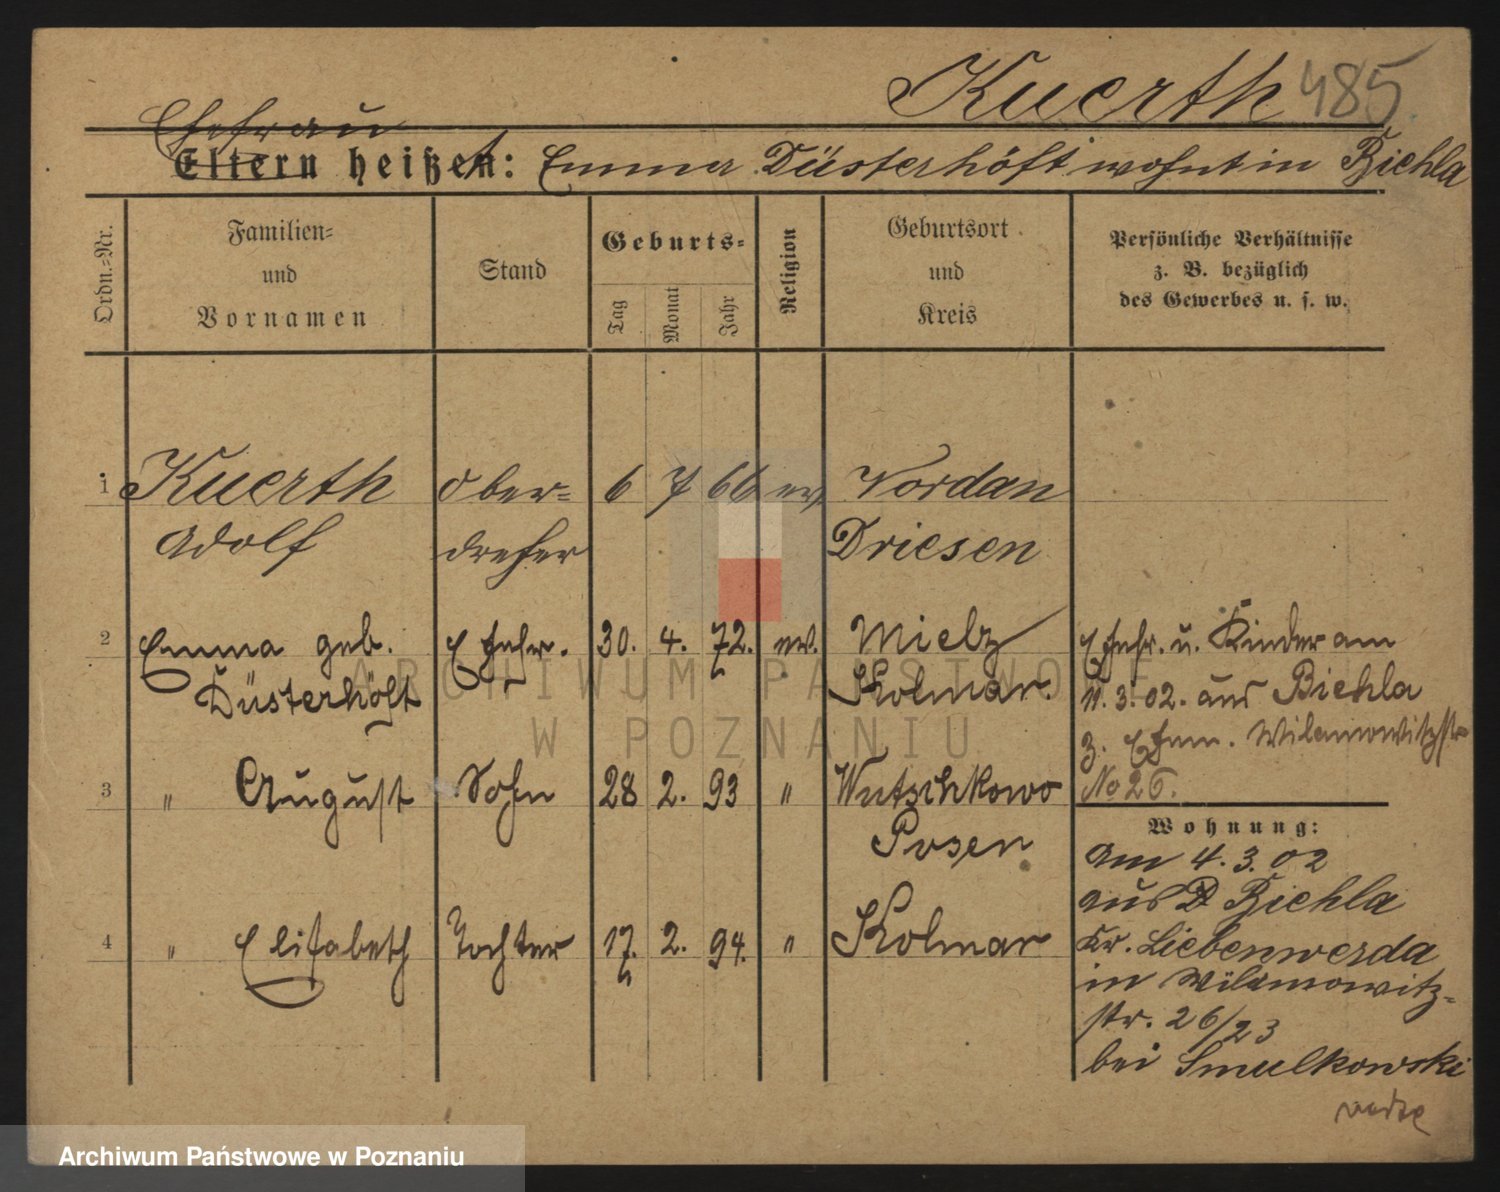 Kuerth 485
Ehefrau
Eltern heißen: Emma Düsterhöft wohnt in Biehla
Ordn.-Nr.
Familien-
und
Vornamen
Stand
Geburts-
Tag
Monat
Jahr
Religion
Geburtsort
und
Kreis
Persönliche Verhältnisse
z. B. bezüglich
des Gewerbes u. s. w.
1 Kuerth Ober- 6 7 66 ev. Vordan
Adolf dreher Driesen
2 Emma geb. Ehefr. 30. 4. 72. ev. Mielz
Düsterhöft Kolmar
Ehefr. u. Kinder am
11.3.02. aus Biehla
z. Ehem. Wilamowitzstr.
No 26.
3 " August Sohn 28 2. 93 " Wutschkowo
Posen
4 " Elisabeth Tochter 17. 2. 94. " Kolmar
Wohnung:
Am 4.3.02
aus Biehla
Kr. Liebenwerda
in Wilamowitz-
str. 26/23
bei Smulkowski
ARCHIWUM PAŃSTWOWE
W POZNANIU
Archiwum Państwowe w Poznaniu